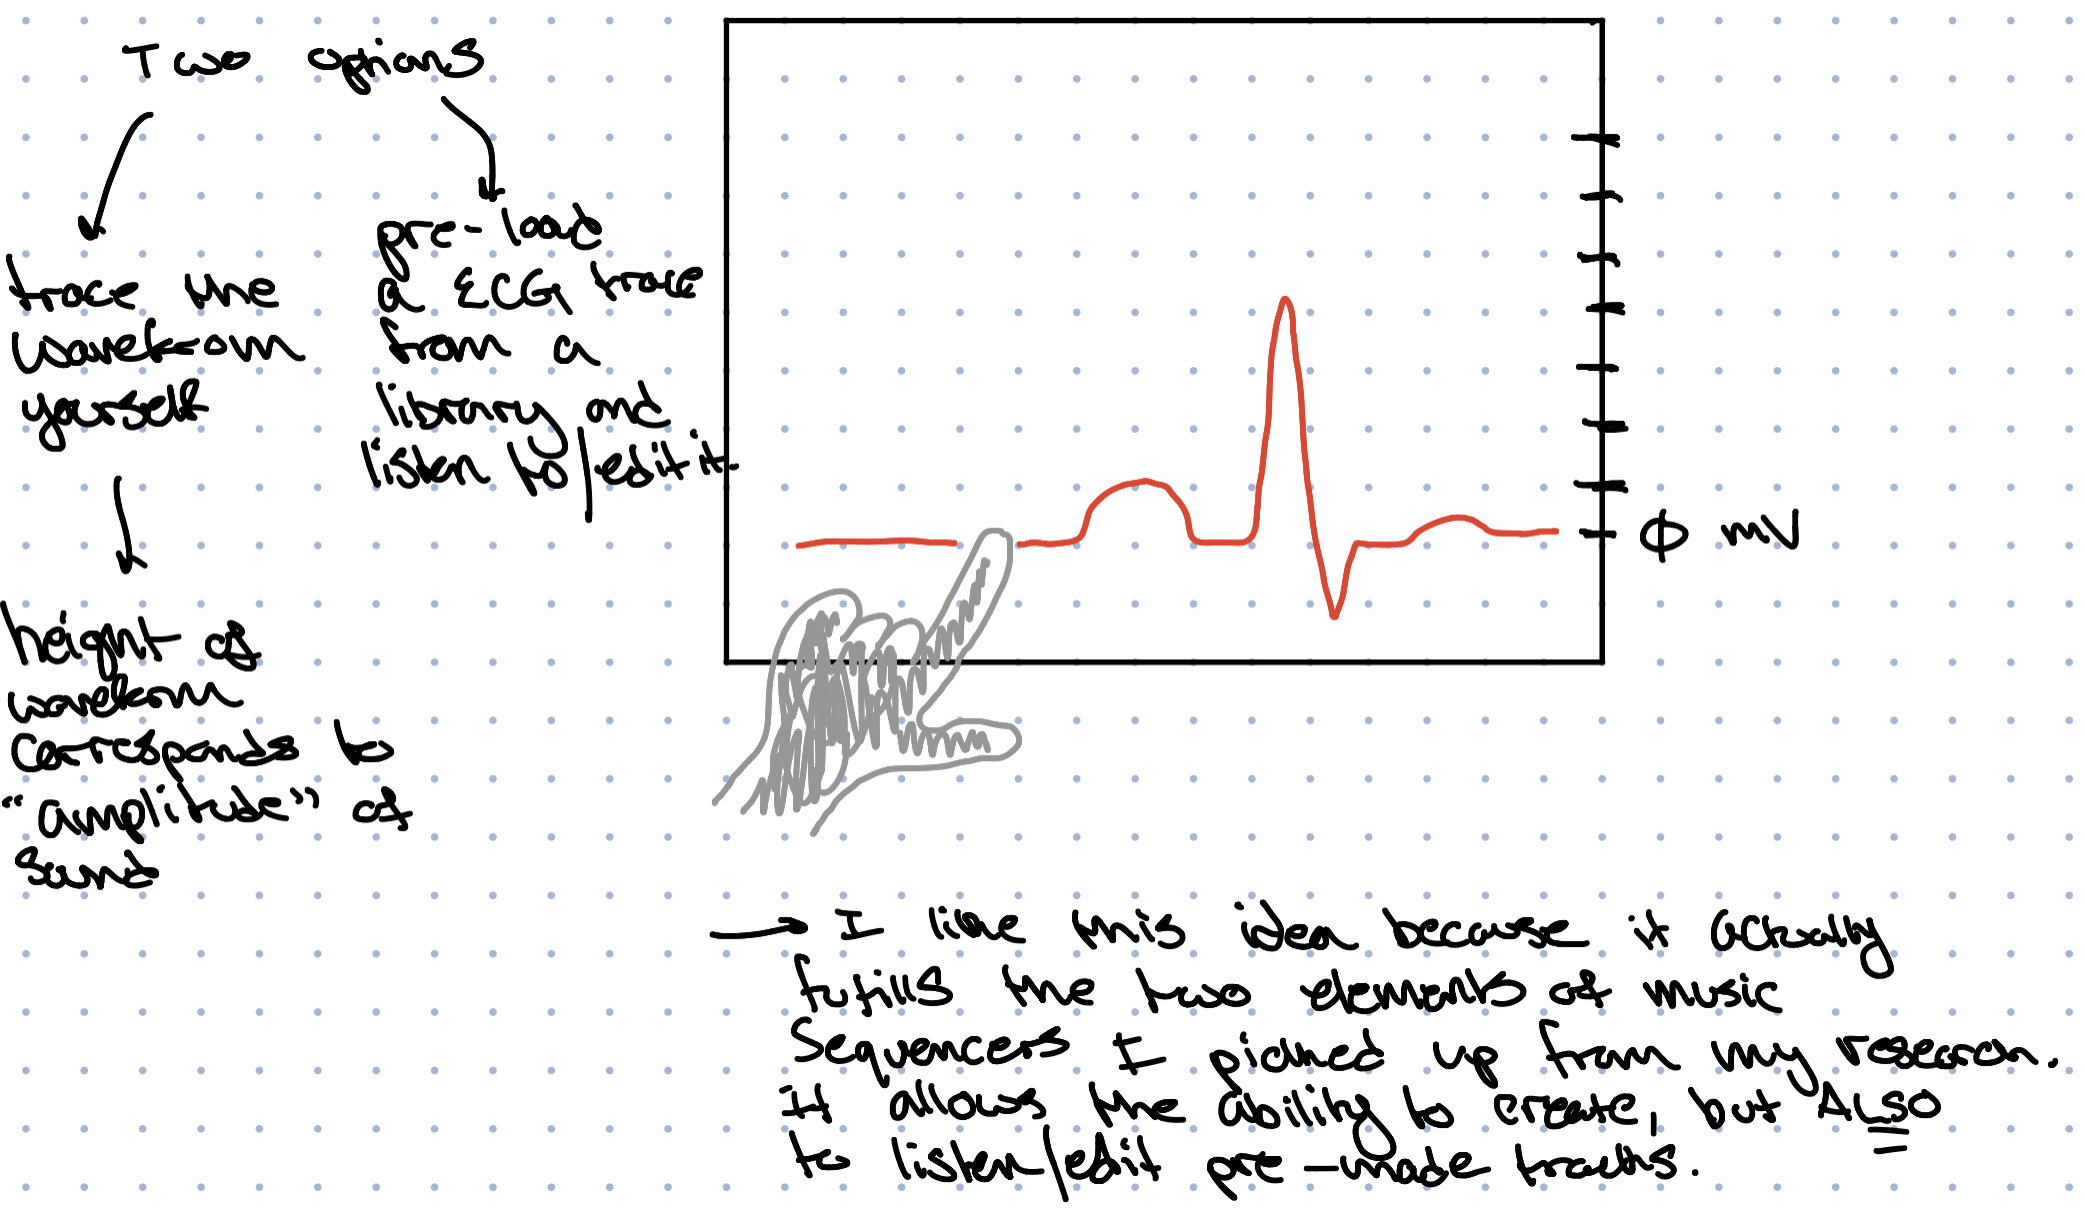 Two options
trace the
waveform
yourself
height of
waveform
corresponds to
"amplitude" of
sound
pre-load
a ECG trace
from a
library and
listen to/edit it
0 mV
→ I like this idea because it actually
fufills the two elements of music
Sequencers I picked up from my research.
It allows the ability to create, but ALSO
to listen/edit pre-made tracks.